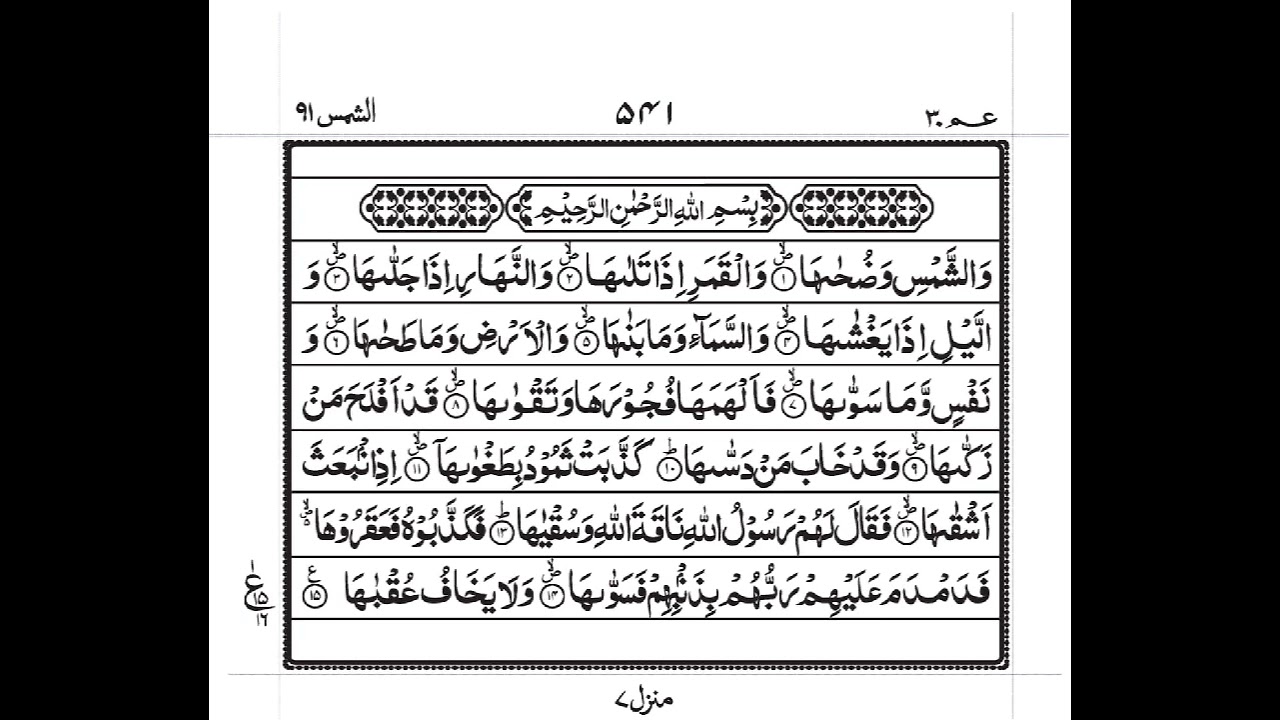 عـم ٣٠ ۵۴۱ الشمس ٩١
بِسْمِ اللهِ الرَّحْمٰنِ الرَّحِيْمِ
وَالشَّمْسِ وَضُحٰىهَا ۙ۝۱ وَالْقَمَرِ اِذَا تَلٰىهَا ۙ۝۲ وَالنَّهَارِ اِذَا جَلّٰىهَا ۙ۝۳ وَ
الَّيْلِ اِذَا يَغْشٰىهَا ۙ۝۴ وَالسَّمَآءِ وَمَا بَنٰىهَا ۙ۝۵ وَالْاَرْضِ وَمَا طَحٰىهَا ۙ۝۶ وَ
نَفْسٍ وَّمَا سَوّٰىهَا ۙ۝۷ فَاَلْهَمَهَا فُجُوْرَهَا وَتَقْوٰىهَا ۙ۝۸ قَدْ اَفْلَحَ مَنْ
زَكّٰىهَا ۙ۝۹ وَقَدْ خَابَ مَنْ دَسّٰىهَا ؕ۝۱۰ كَذَّبَتْ ثَمُوْدُ بِطَغْوٰىهَاۤ ۙ۝۱۱ اِذِ انْۢبَعَثَ
اَشْقٰىهَا ۙ۝۱۲ فَقَالَ لَهُمْ رَسُوْلُ اللهِ نَاقَةَ اللهِ وَسُقْيٰهَا ؕ۝۱۳ فَكَذَّبُوْهُ فَعَقَرُوْهَا ۙ۵
فَدَمْدَمَ عَلَيْهِمْ رَبُّهُمْ بِذَنْۢبِهِمْ فَسَوّٰىهَا ۙ۝۱۴ وَلَا يَخَافُ عُقْبٰهَا ۝۱۵ ع
ع ۱۵ ۱۶
منزل ۷